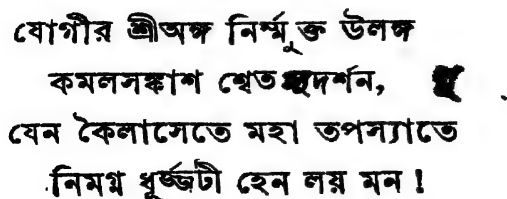 যোগীর শ্রীঅঙ্গ নির্ম্মুক্ত উলঙ্গ
কমলসঙ্কাশ শ্বেত সুদর্শন,
যেন কৈলাসেতে মহা তপস্যাতে
নিমগ্ন ধূর্জ্জটী হেন লয় মন !